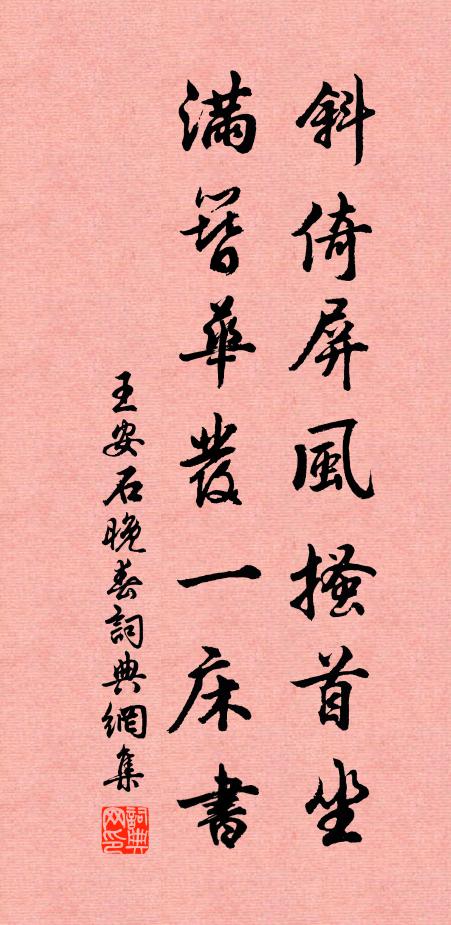 斜倚屏風搔首坐
滿簪華發一床書
王安石晚春詞典網集
詞典网印